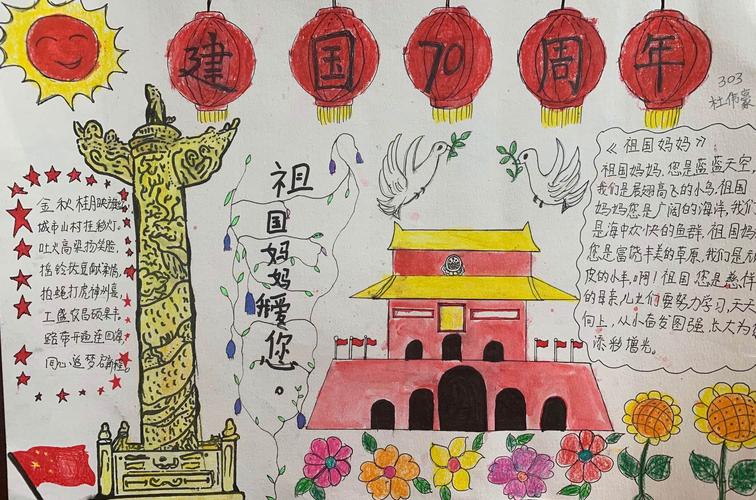 建国70周年
303
杜伟豪
祖国妈妈我爱您。
金秋桂月映海
城市山村挂彩灯。
吐火高梁扬笑脸,
拍蝇打虎神州晏,
工盛农昌硕果丰,
同心追梦
《祖国妈妈》
祖国妈妈,您是蓝蓝天空,
我们是展翅高飞的小鸟,祖国
妈妈您是广阔的海洋,我们
是海中欢快的鱼群,祖国妈
您是富饶丰美的草原,我们是
皮的小羊,啊!祖国您是慈祥
的母亲儿女们要努力学习,天天
向上,从小奋发图强,长大为
添彩增光。